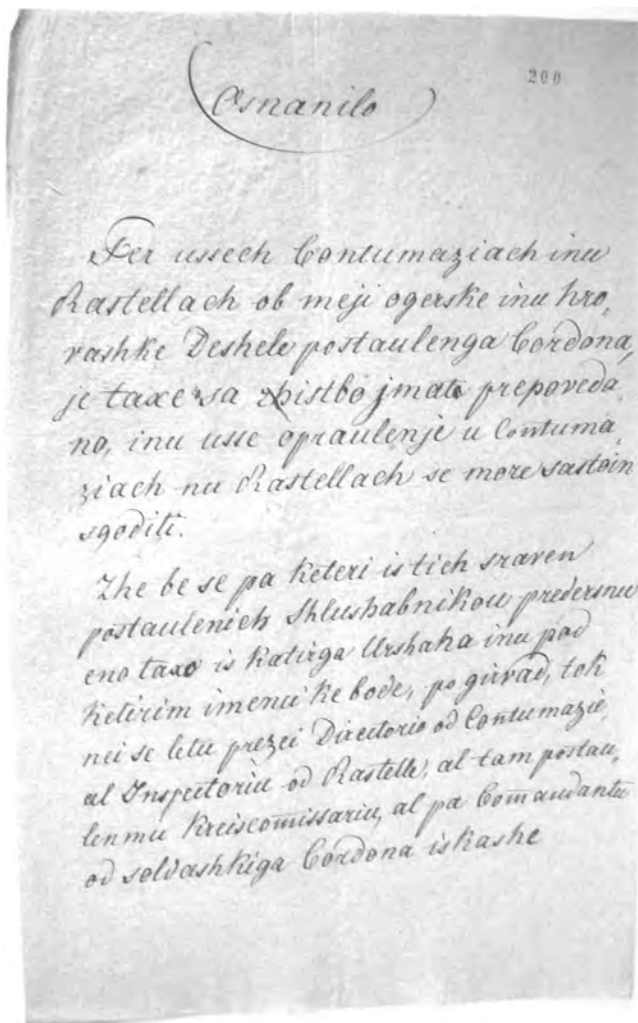 200
Osnanilo
Per ussech Contumaziach inu
Rastellach ob meji ogerske inu hro,
vashke Deshele postaulenga Cordona,
je taxe sa zhistbo jmati prepoveda,
no, inu usse opraulenje u Contuma,
ziach nu Rastellach se more sastoin
sgoditi.
Zhe be se pa keteri is tich sraven
postaulenich Shlushabnikou predersnu
eno taxo is katirga Urshaha inu pod
ketirim imenu ke bode, po girvad, tok
nei se letu prezei Directorio od Contumazie,
al Inspectoriu od Rastelle, al tam postau,
lenmu Kreiscomissariu, al pa Comandantu
od soldashkiga Cordona iskashe